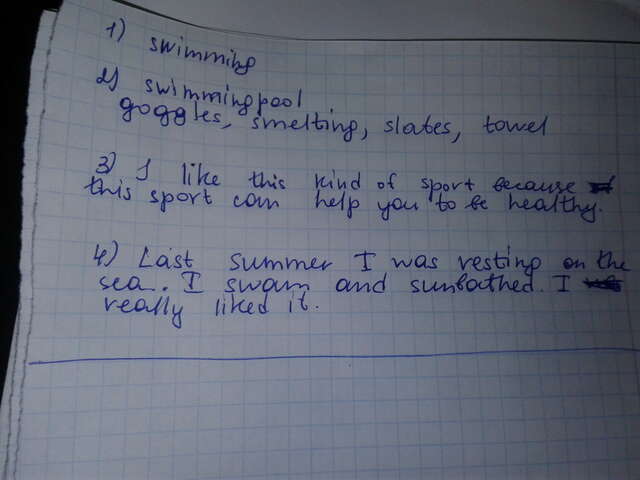 1) swimming
2) swimming pool
goggles, smelting, slates, towel
3) I like this kind of sport because
this sport can help you to be healthy.
4) Last summer I was resting on the
sea. I swam and sunbathed. I
really liked it.